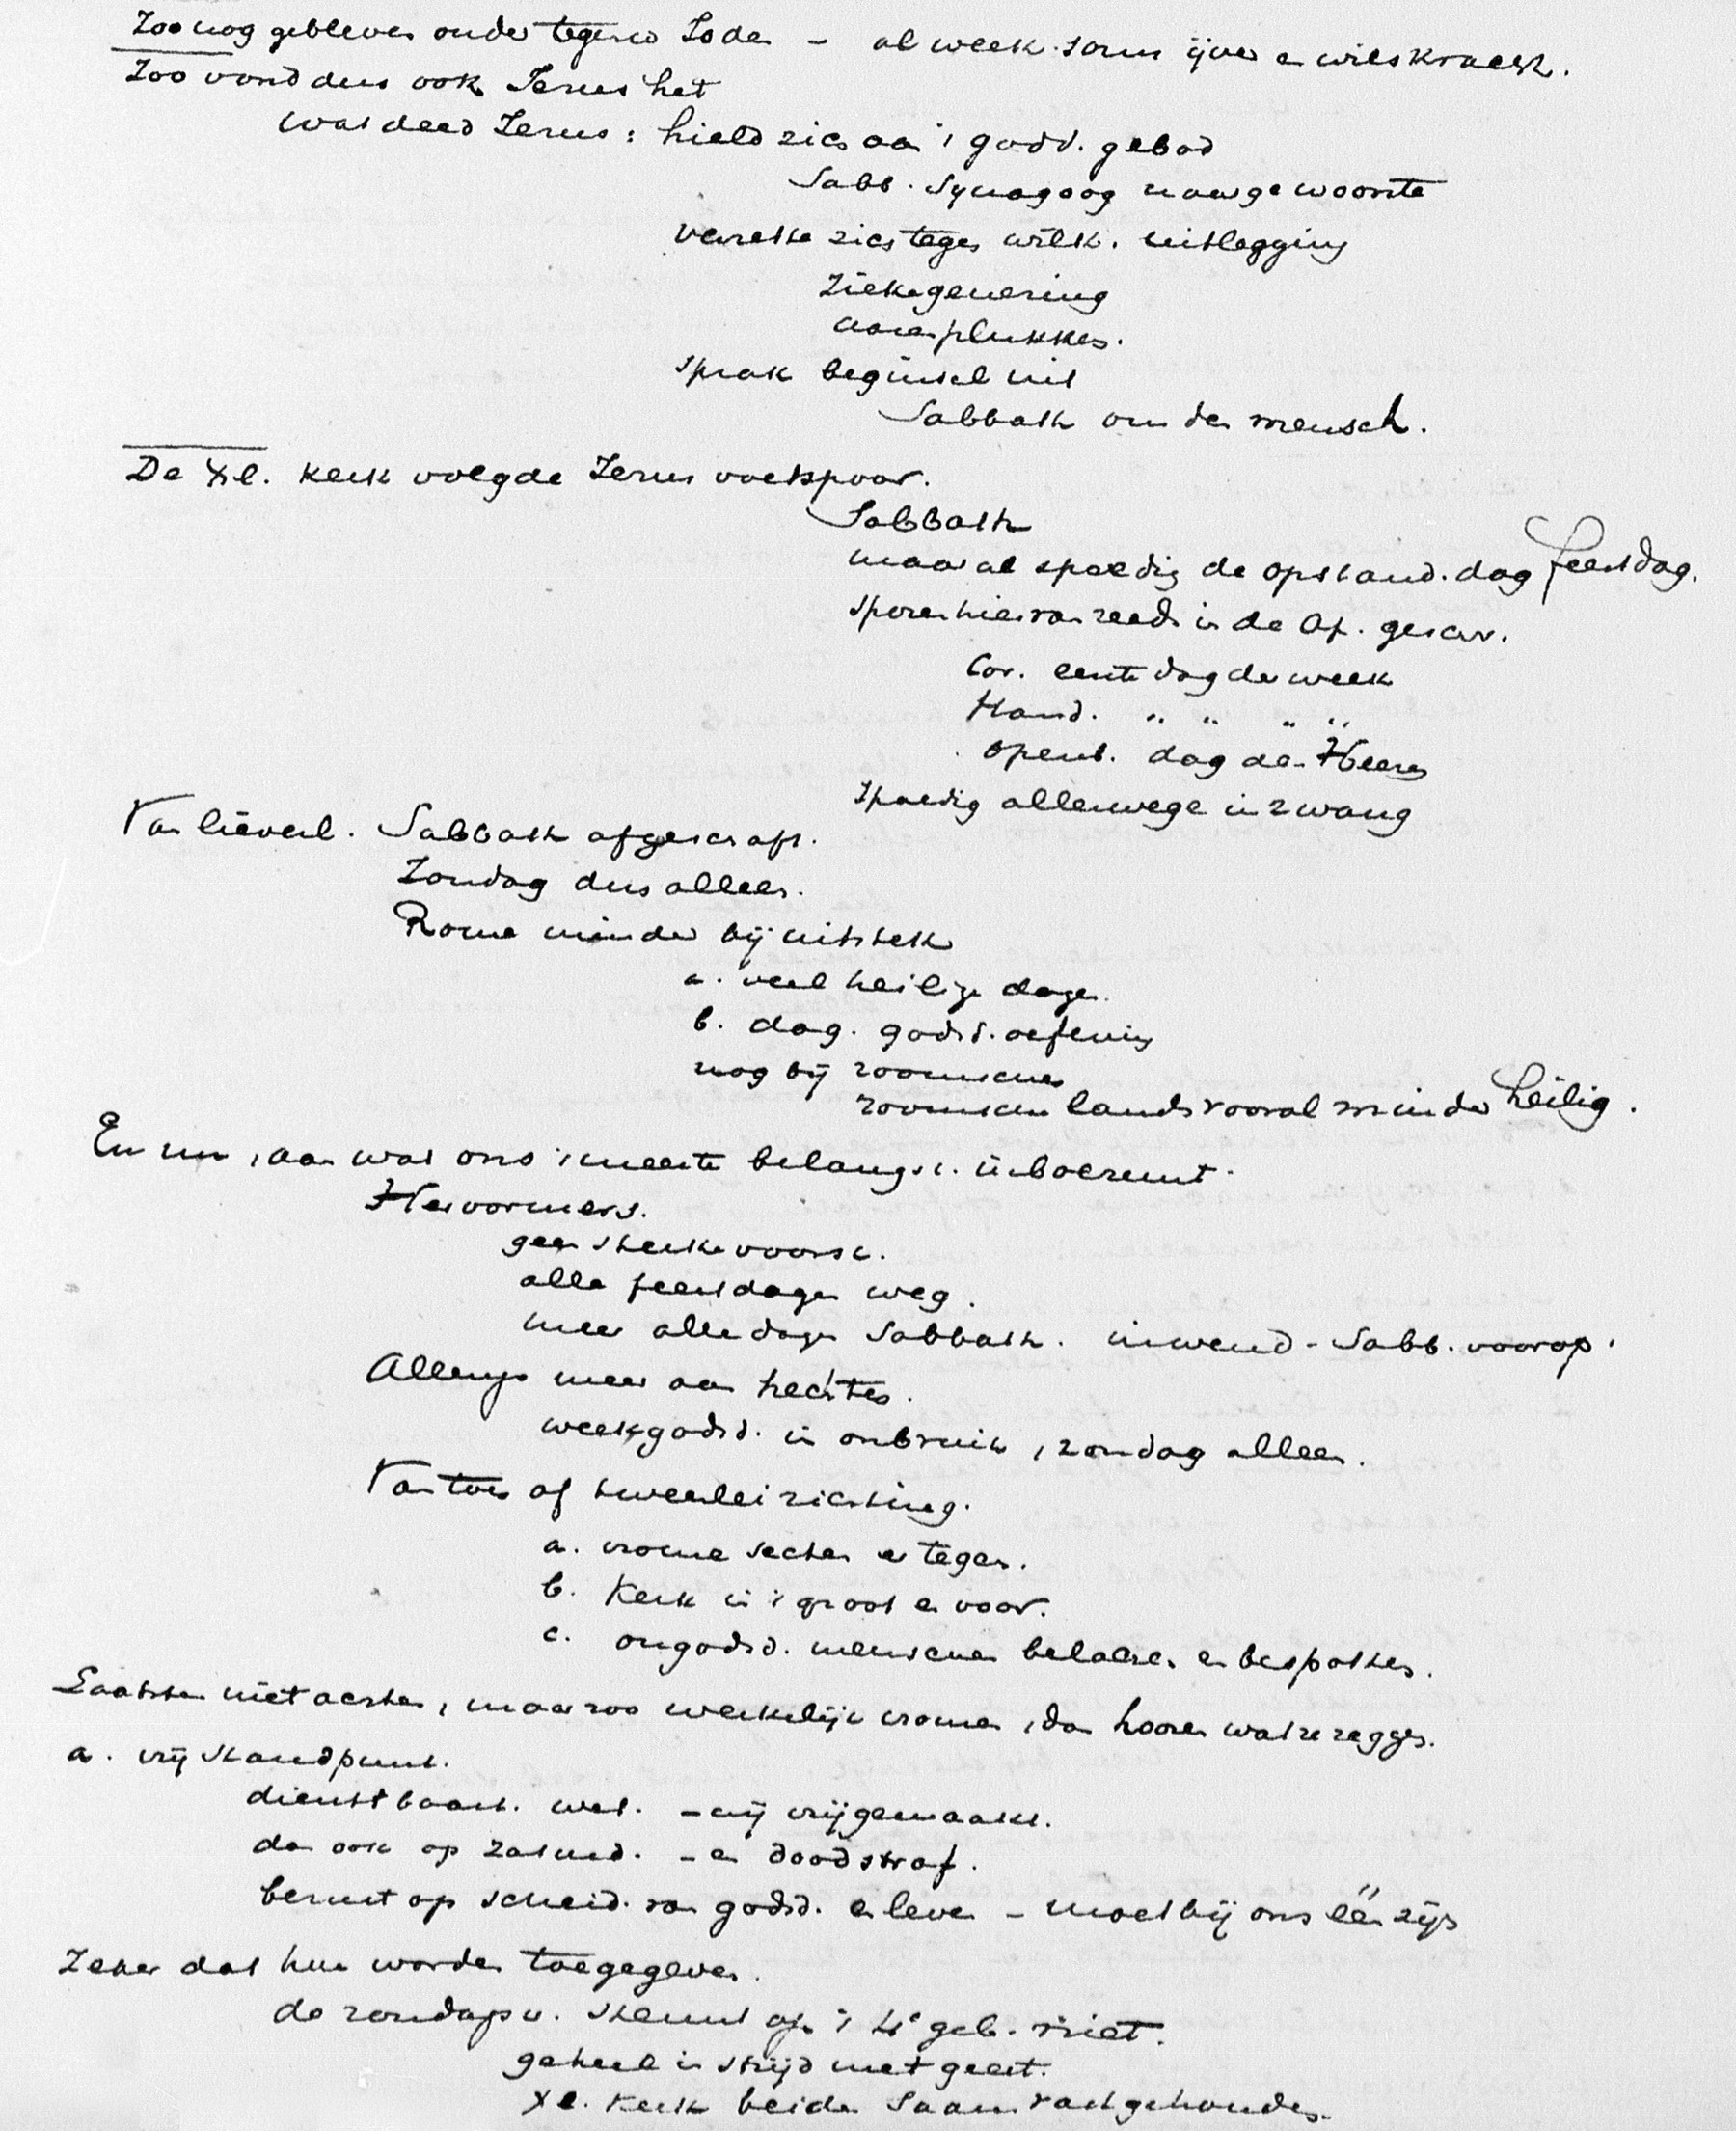 Zoo nog gebleven onder tegenw Joden - al week. soms ijver en wilskracht.
Zoo vond dus ook Jezus het
Wat deed Jezus: hield zich aan 't godd. gebod
Sabb. Synagoog naar gewoonte
verzette zich tegen wilk. uitlegging
Ziekegenezing
aarenplukken.
sprak beginsel uit
Sabbath om den mensch.
De Xel. kerk volgde Jezus voetspoor.
Sabbath
maar al spoedig de opstand. dag feestdag.
sporen hiervan reeds in de Ap. geschr.
Cor. eerste dag der week
Hand. " " " "
Openb. dag des Heeren
spoedig allerwege in zwang
Van lieverl. Sabbath afgeschaft.
Zondag dus alleen.
Rome minder bij uitstek
a. veel heilige dagen.
b. dag. godsd. oefening
nog bij roomschen
roomsche lands vooral minder heilig.
En nu, aan wat ons 't meeste belangst. inboezemt.
Hervormers.
geen sterke voorst.
alle feestdagen weg.
meer alle dagen Sabbath. inwend. Sabb. voorop.
Allengs meer aan hechten.
weekgodsd. in onbruik, zondag alleen.
Van toen af tweeerlei richting.
a. vrome secten er tegen.
b. Kerk in 't groot er voor.
c. ongodsd. menschen belachen en bespotten.
Laatsten niet achten, maar zoo werkelijk vromen, dan hooren wat ze zeggen.
a. vrij standpunt.
dienstbaarh. wet. - wij vrijgemaakt.
dan ook op zaturd. - en doodstraf.
berust op scheid. van godsd. en leven - moet bij ons één zijn
Zeker dat hun worden toegegeven.
de zondagsv. steunt op 't 4e geb. niet.
geheel in strijd met geest.
Xel. Kerk beiden saam vastgehouden.